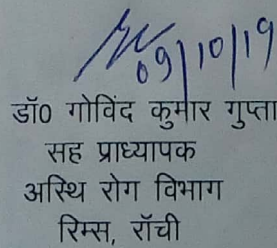 09/10/19
डॉ0 गोविंद कुमार गुप्ता
सह प्राध्यापक
अस्थि रोग विभाग
रिम्स, रॉची